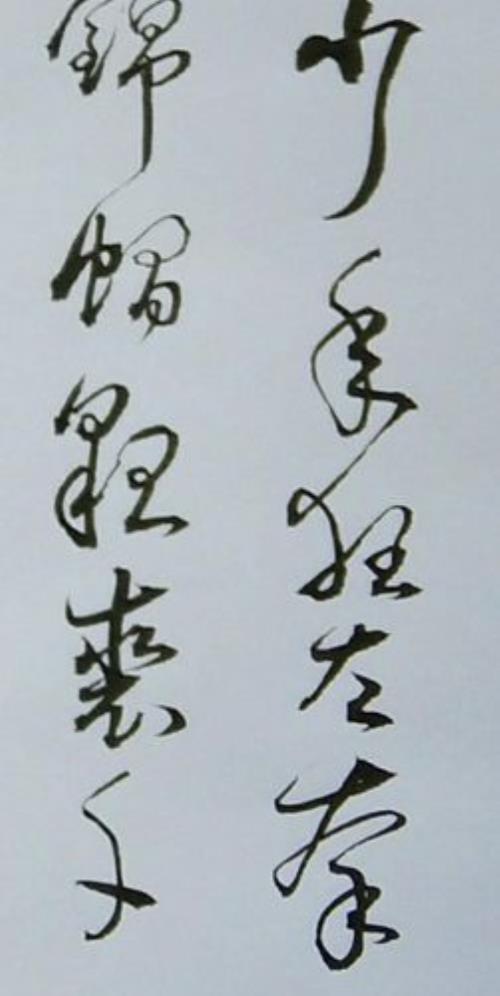 少年狂左牵
錦帽貂裘千